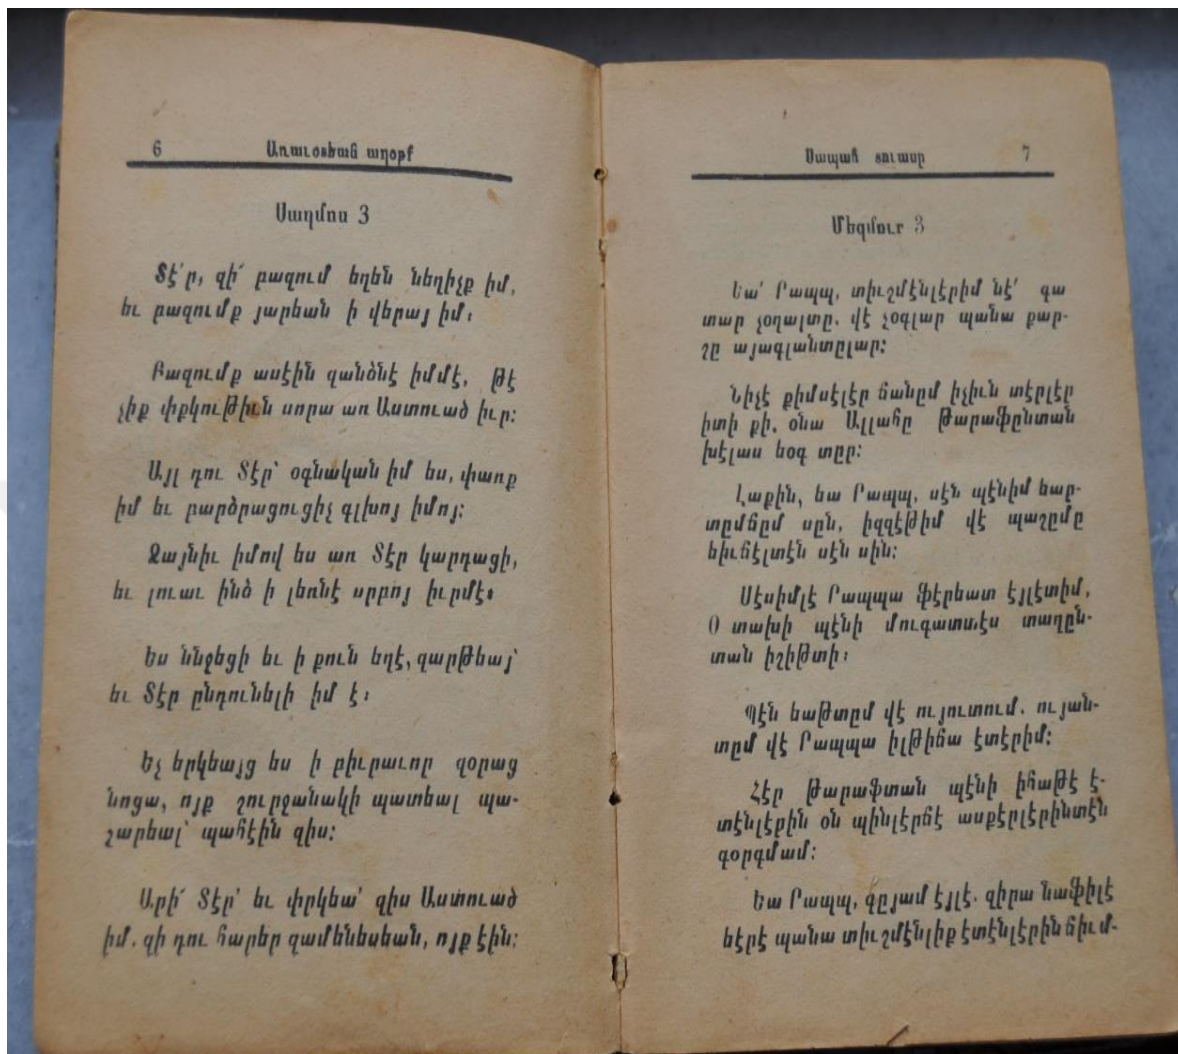 6 Առաւօտեան աղօթք
Սաղմոս 3
Տէ՛ր, զի՛ բազում եղեն նեղիչք իմ,
եւ բազումք յարեան ի վերայ իմ։
Բազումք ասէին զանձնէ իմմէ, թէ
չիք փրկութիւն սորա առ Աստուած իւր։
Այլ դու Տէր՝ օգնական իմ ես, փառք
իմ եւ բարձրացուցիչ գլխոյ իմոյ։
Ձայնիւ իմով ես առ Տէր կարդացի,
եւ լուաւ ինձ ի լեռնէ սրբոյ իւրմէ։
Ես ննջեցի եւ ի քուն եղէ, զարթեայ՝
եւ Տէր ընդունելի իմ է։
Եչ երկեայց ես ի բիւրաւոր զօրաց
նոցա, ոյք շուրջանակի պատեալ պա-
շարեալ՝ պահէին զիս։
Արի՛ Տէր՝ եւ փրկեա՛ զիս Աստուած
իմ. զի դու հարեր զամենեսեան, ոյք էին։
Սապահ տուասը 7
Մեզմուր 3
Եա՛ Րապպ, տիւշմէնլէրիմ նէ՛ գա
տար չօղալտը. վէ չօգլար պանա քար-
շը այագլանտըլար։
Նիչէ քիմսէլէր ճանըմ իչիւն տէրլէր
իտի քի, օնա Ալլահը թարաֆընտան
խէլաս եօգ տըր։
Լաքին, եա Րապպ, սէն պէնիմ եար-
տըմճըմ սըն, իզզէթիմ վէ պաշըմը
եիւճէլտէն սէն սին։
Սէսիմլէ Րապպա ֆէրեատ էյլէտիմ,
Օ տախի պէնի մուգատտէս տաղըն-
տան իշիթտի։
Պէն եաթտըմ վէ ույուտում. ույան-
տըմ վէ Րապպա իլթիճա էտէրիմ։
Հէր թարաֆտան պէնի իհաթէ է-
տէնլէրին օն պինլէրճէ ասքէրլէրինտէն
գօրգմամ։
Եա Րապպ, գըյամ էյլէ. զիրա նաֆիլէ
եէրէ պանա տիւշմէնլիք էտէնլէրին ճիւմ-